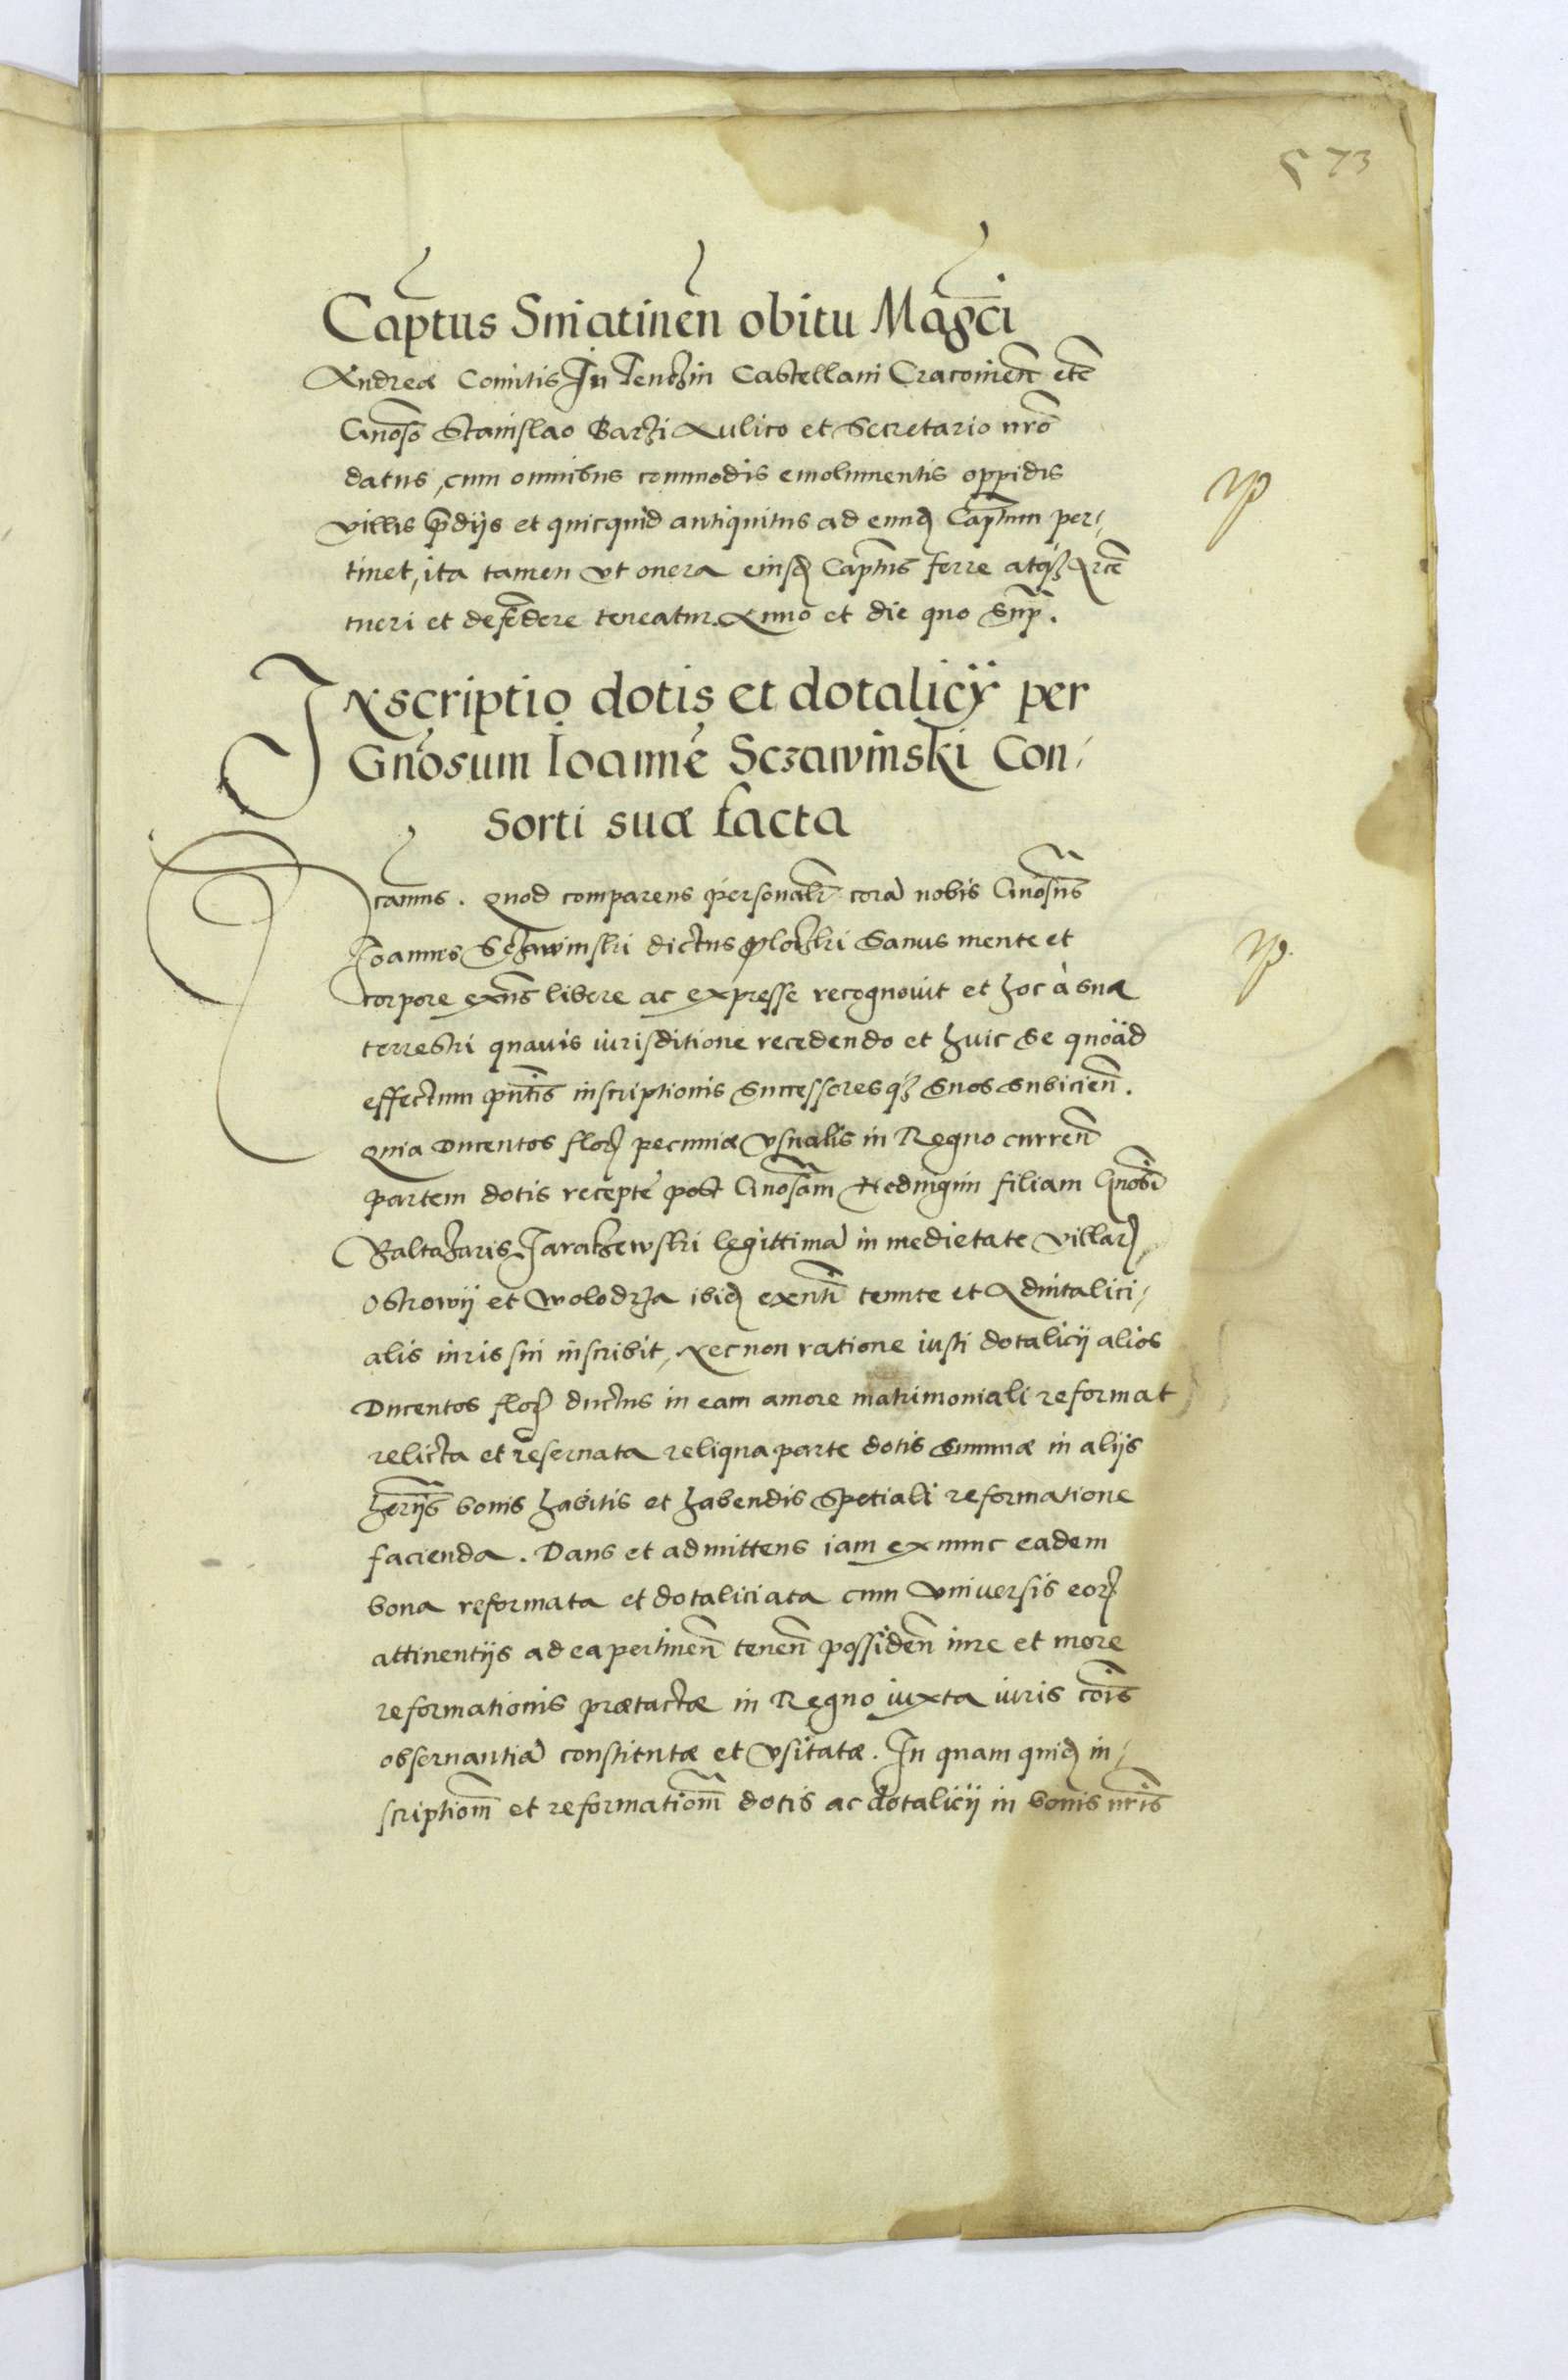 573
Captus Sniatinen̄ obitu Magci
Andreæ Comitis In Tenchin Castellani Cracovien̄ etc̄
Gnoso Stanislao Barzi Aulico et Secretario nr̄o
datus, cum omnibus commodis emolumentis oppidis
villis p̄dijs et quicquid antiquitus ad eund Captum per-
tinet, ita tamen vt onera eiusd Captus ferre atqȝ Arcē
tueri et defēdere teneatur. Anno et die quo Sup̄.
Inscriptio dotis et dotalicij per
Gnosum Ioannē Sczawinski Con-
sorti suæ facta
icamus. Quod comparens personalr̄ corā nobis Gnosus
Ioannes Sczawinski dictus Plochki Sanus mente et
corpore exn̄s libere ac expresse recognovit et hoc à sua
terrestri quavis iurisditione recedendo et huic se quoad
effectum pn̄tis inscriptionis Successoresqȝ suos subicien̄.
Quia Ducentos flor pecuniæ vsualis in Regno curren̄
partem dotis receptē post Gnosam Hedvigim filiam Gnosi
Baltazaris Jarachewski legittimā in medietate villar
Ostrowij et Wolodrza ibid exen̄ti tenute et Advitalici-
alis iuris sui inscribit, Necnon ratione iusti dotalicij alios
Ducentos flor ductus in eam amore matrimoniali reformat
relicta et reservata reliqua parte dotis summæ in alijs
herijs bonis habitis et habendis Spetiali reformatione
facienda. Dans et admittens iam ex nunc eadem
bona reformata et dotaliciata cum Vniversis eor
attinentijs ad ea pertinen̄ tenen̄ possiden̄ iure et more
reformationis prætactæ in Regno iuxta iuris cōis
observantiā constitutæ et vsitatæ. In quam quid in-
scriptiom̄ et reformatiom̄ dotis ac dotalicij in bonis nr̄is